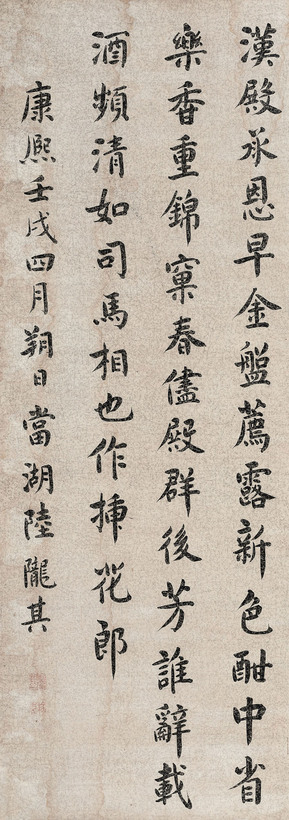 漢殿承恩早金盤薦露新色酣中省
樂香重錦窠春儘殿群後芳誰辭載
酒頻清如司馬相也作揷花郎
康熈壬戌四月朔日當湖陸隴其